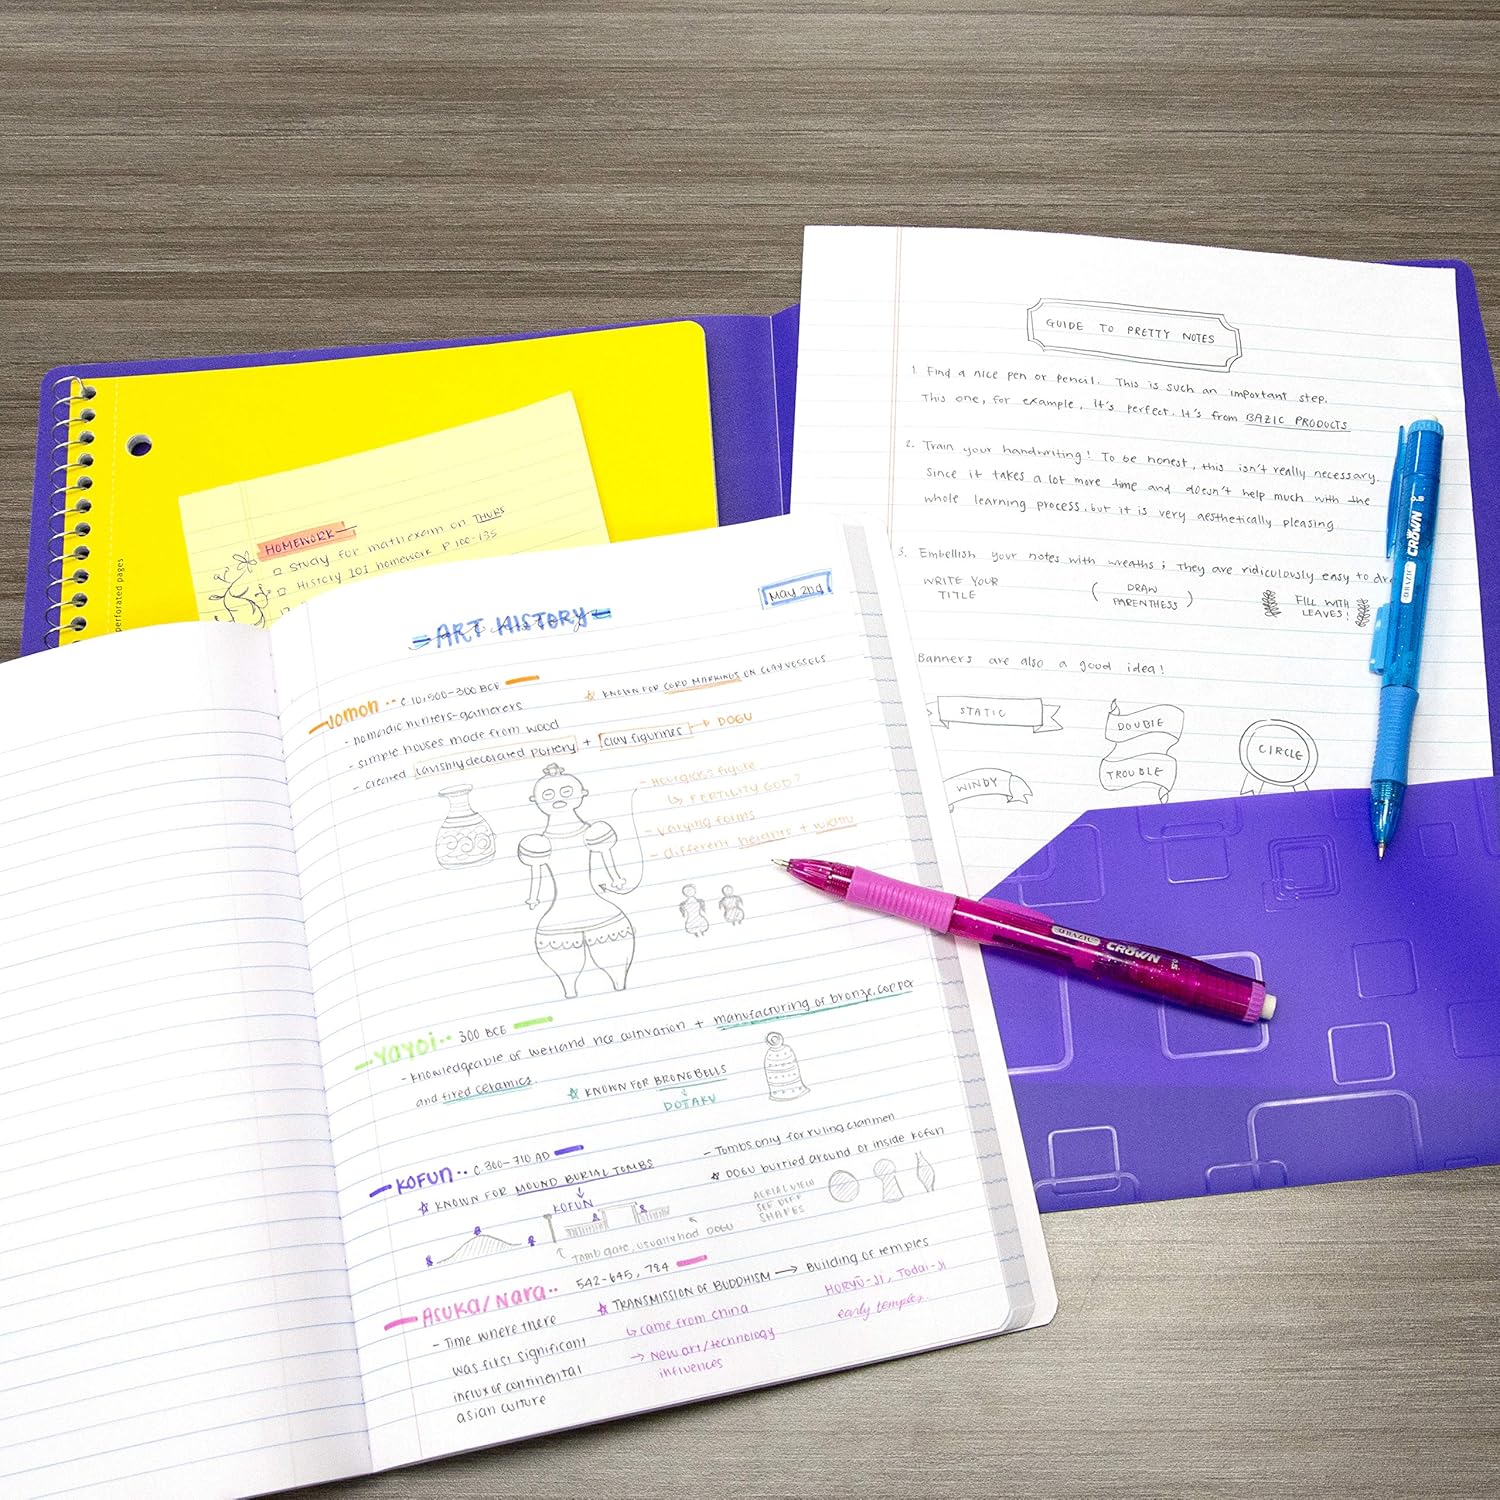 perforated pages
HOMEWORK
STUDY for math exam on THURS
HISTORY 101 homework P 100-135
GUIDE TO PRETTY NOTES
1. Find a nice pen or pencil. This is such an important step.
This one, for example, it's perfect. It's from BAZIC PRODUCTS
2. Train your handwriting! To be honest, this isn't really necessary.
Since it takes a lot more time and doesn't help much with the
whole learning process, but it is very aesthetically pleasing
3. Embellish your notes with wreaths; They are ridiculously easy to dra
WRITE YOUR
TITLE
( DRAW
PARENTHESS )
FILL WITH
LEAVES!
Banners are also a good idea!
STATIC
DOUBLE
TROUBLE
CIRCLE
WINDY
BAZIC CROWN 0.5
BAZIC CROWN 0.5
May 2nd
ART HISTORY
Jomon -- c 10,500-300 BCE
☆ KNOWN FOR CORD MARKINGS ON CLAY VESSELS
- nomadic hunters-gatherers
- simple houses made from wood
- created lavishly decorated pottery + clay figurines → DOGU
- Hourglass figure
↳ FERTILITY GOD?
- varying forms
- different heights + widths
Yayoi -- 300 BCE
- knowledgeable of wetland rice cultivation + manufacturing of bronze, copper
and fired ceramics.
☆ KNOWN FOR BRONE BELLS
↓
DOTAKU
KOFUN -- c. 300-710 AD
☆ KNOWN FOR MOUND BURIAL TOMBS
↓
KOFUN
- Tombs only for ruling clanmen
☆ DOGU burried around or inside kofun
AERIAL VIEW
SEE DIFF
SHAPES
↑ Tomb gate, usually had DOGU
Asuka/Nara -- 542-645, 784
☆ TRANSMISSION OF BUDDHISM → Building of temples
HORYŪ-JI, Todai-Ji
early temples.
↳ came from China
→ New art/technology
influences
- Time where there
was first significant
influx of continental
asian culture